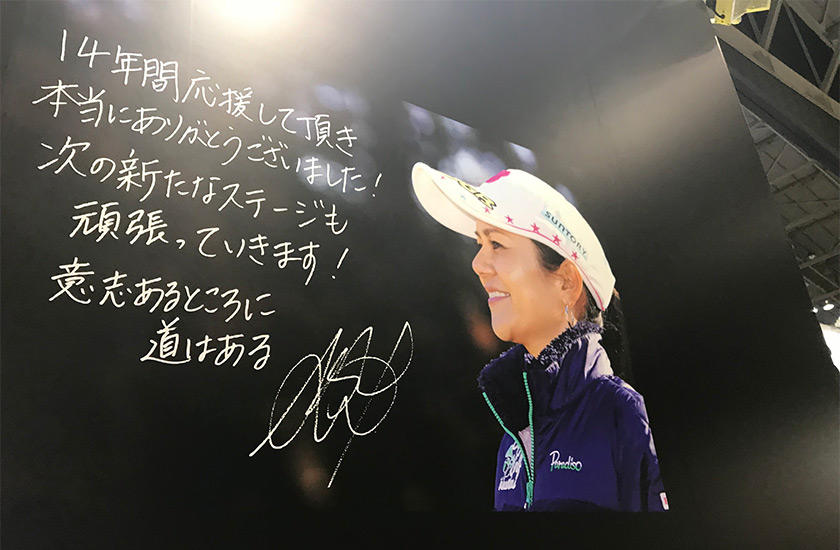 14年間応援して頂き
本当にありがとうございました!
次の新たなステージも
頑張っていきます!
意志あるところに
道はある
SUNTORY
Paradiso